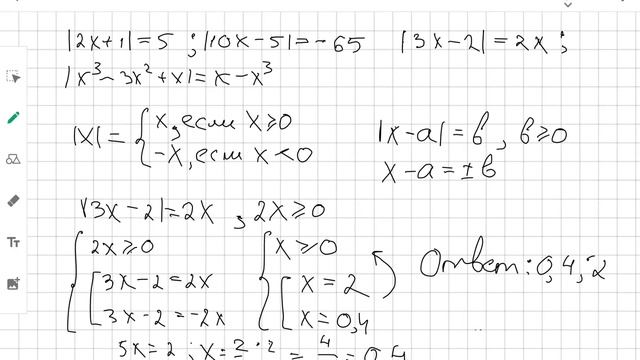 |2x+1|=5 ; |10x-5|=-65 |3x-2|=2x ;
|x³-3x²+x|=x-x³
|x|= { x, если x≥0
-x, если x<0
|x-a|=b, b≥0
x-a=±b
|3x-2|=2x , 2x≥0
{ 2x≥0
[ 3x-2=2x
3x-2=-2x
{ x≥0
[ x=2
x=0,4
Ответ: 0,4; 2
5x=2 ; x=2 ·2 = 4 =0,4
Tт